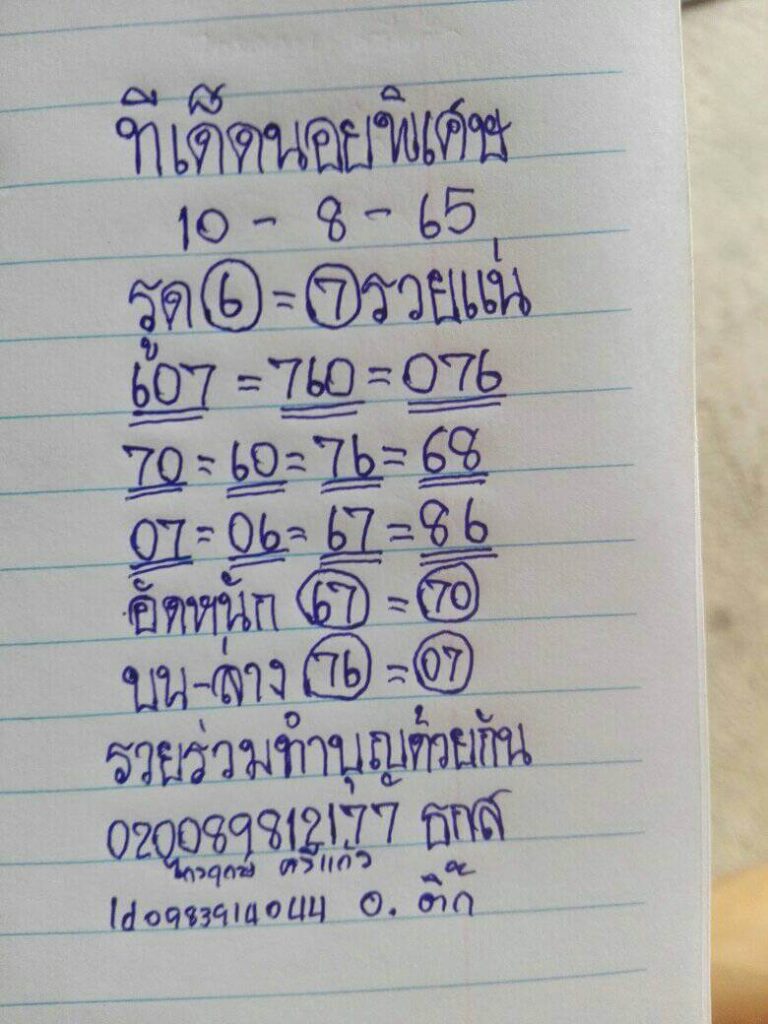 ทีเด็ดนอยพิเศษ
10 - 8 - 65
รูด 6 = 7 รวยแน่น
607 = 760 = 076
70 = 60 = 76 = 68
07 = 06 = 67 = 86
อัดหนัก 67 = 70
บน-ล่าง 76 = 07
รวยร่วมทำบุญด้วยกัน
020089812177 ธกส
ศรีแก้ว
Id 0983914044 อ. ติ๊ก